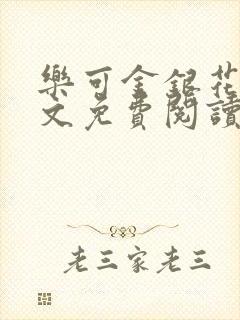 樂可金銀花
文免費閱讀
老三家老三